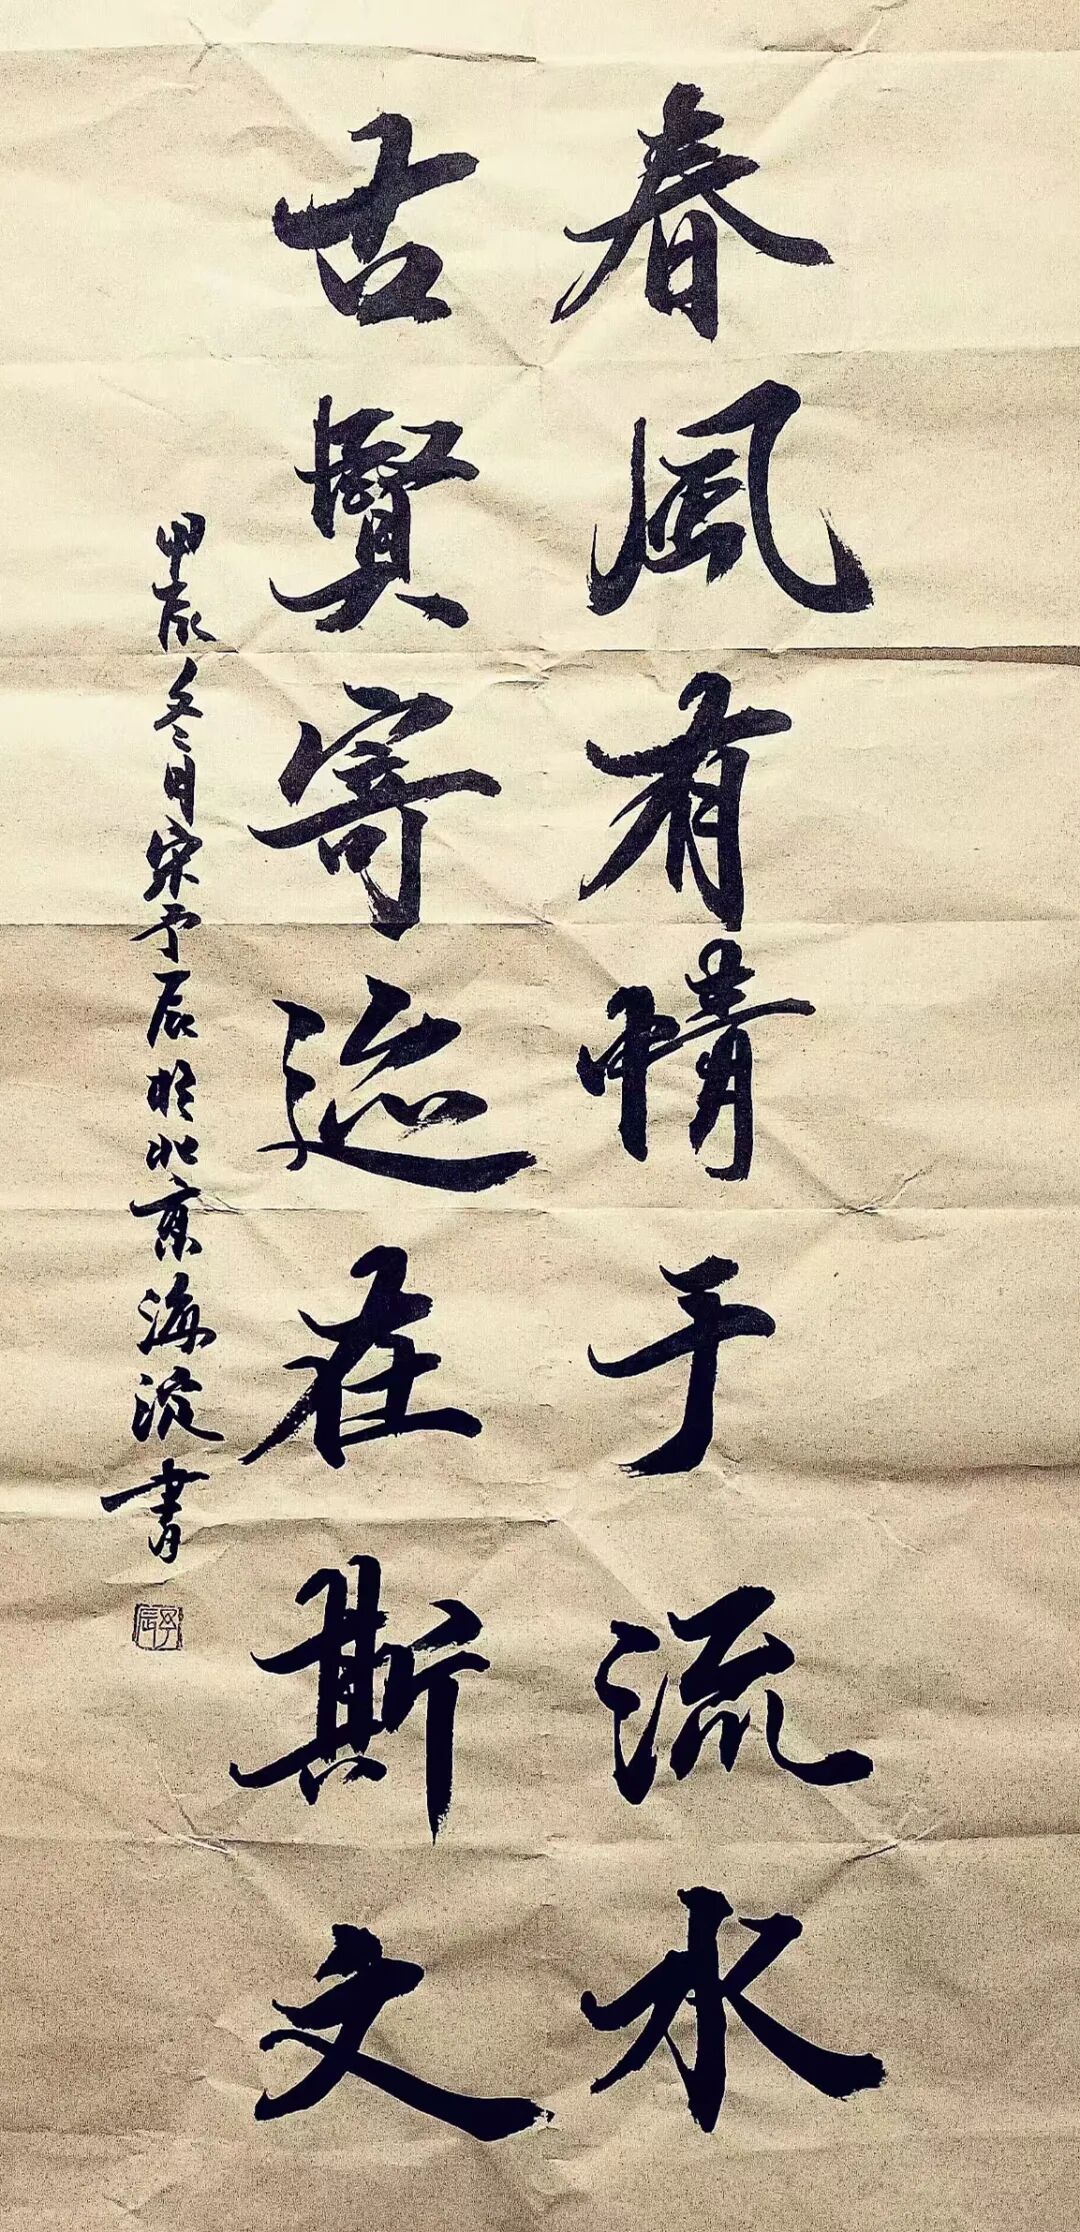 春風有情于流水
古賢寄迹在斯文
甲辰冬日宋予辰於北京海淀書
予辰